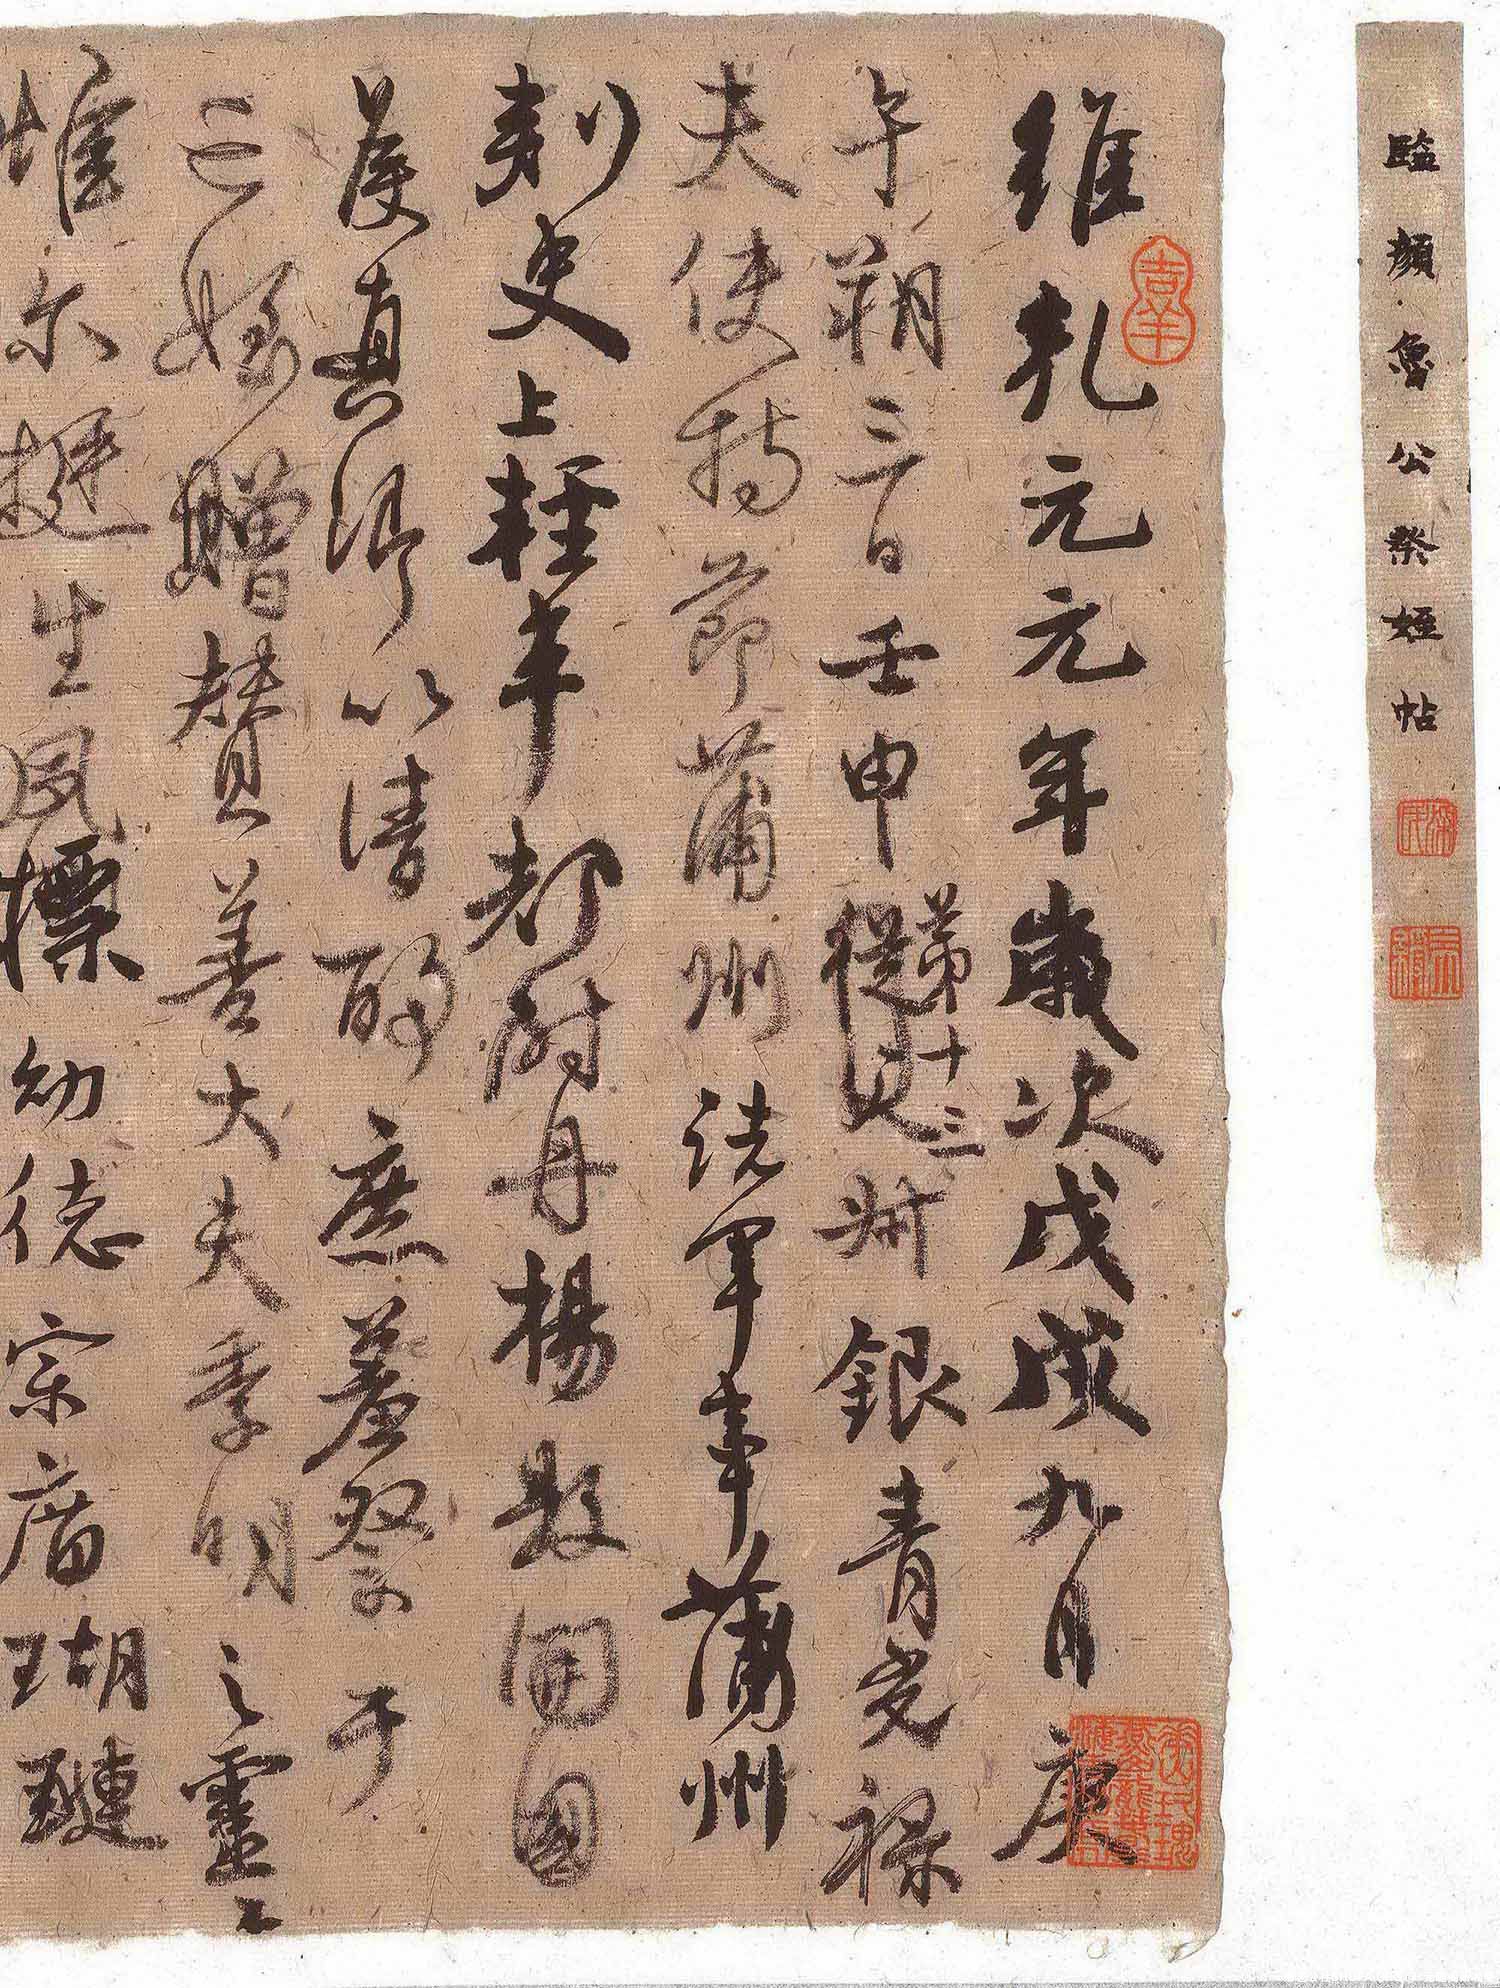 臨顏魯公祭姪帖
維乾元元年歲次戊戌九月庚
午朔三日壬申第十三叔銀青光祿
夫使持節蒲州諸軍事蒲州
刺史上輕車都尉丹楊縣開國
侯真卿以清酌庶羞祭于
亡姪贈贊善大夫季明之靈曰
惟尔挺生夙標幼德宗庿瑚璉
吉羊